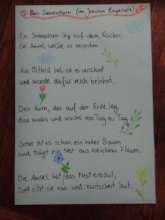 Das Samenkorn (von Joachim Ringelnatz)
Ein Samenkorn lag auf dem Rücken,
Die Amsel wollte es zerpicken.
Aus Mitleid hat sie es verschont
und wurde dafür reich belohnt.
Das Korn, das auf der Erde lag,
das wuchs und wuchs von Tag zu Tag.
Jetzt ist es schon ein hoher Baum
und trägt ein Nest aus weichem Flaum.
Die Amsel hat das Nest erbaut,
dort sitzt sie nun und zwitschert laut.